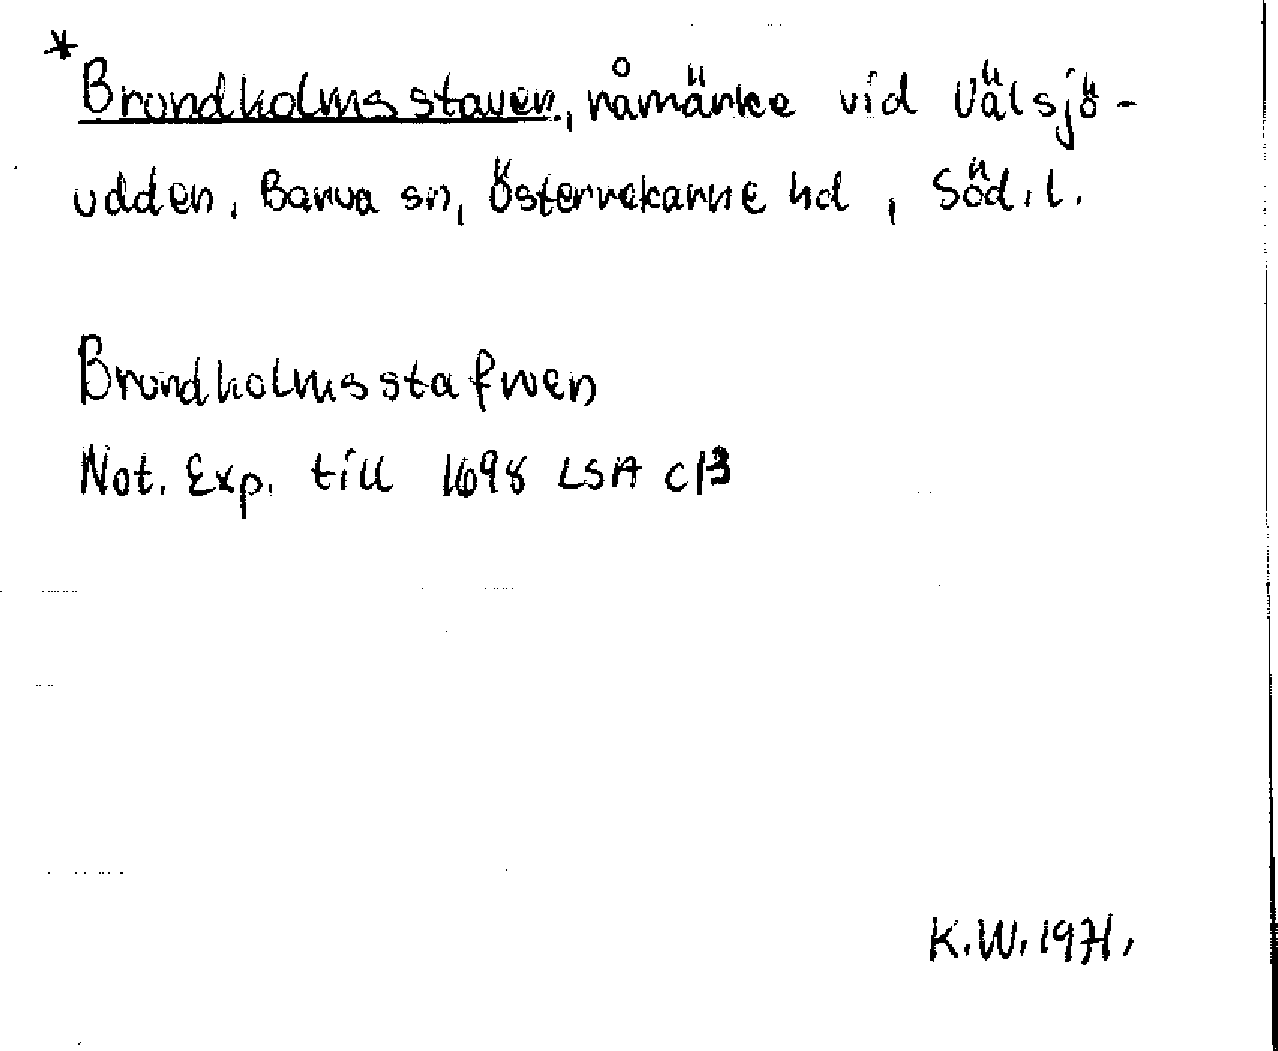 * Brundholmsstaven, råmärke vid Välsjö-
udden, Barva sn, Österrekarne hd, Söd.l.
Brundholmsstafwen
Not. Exp. till 1698 LSA C13
K.W. 1971.